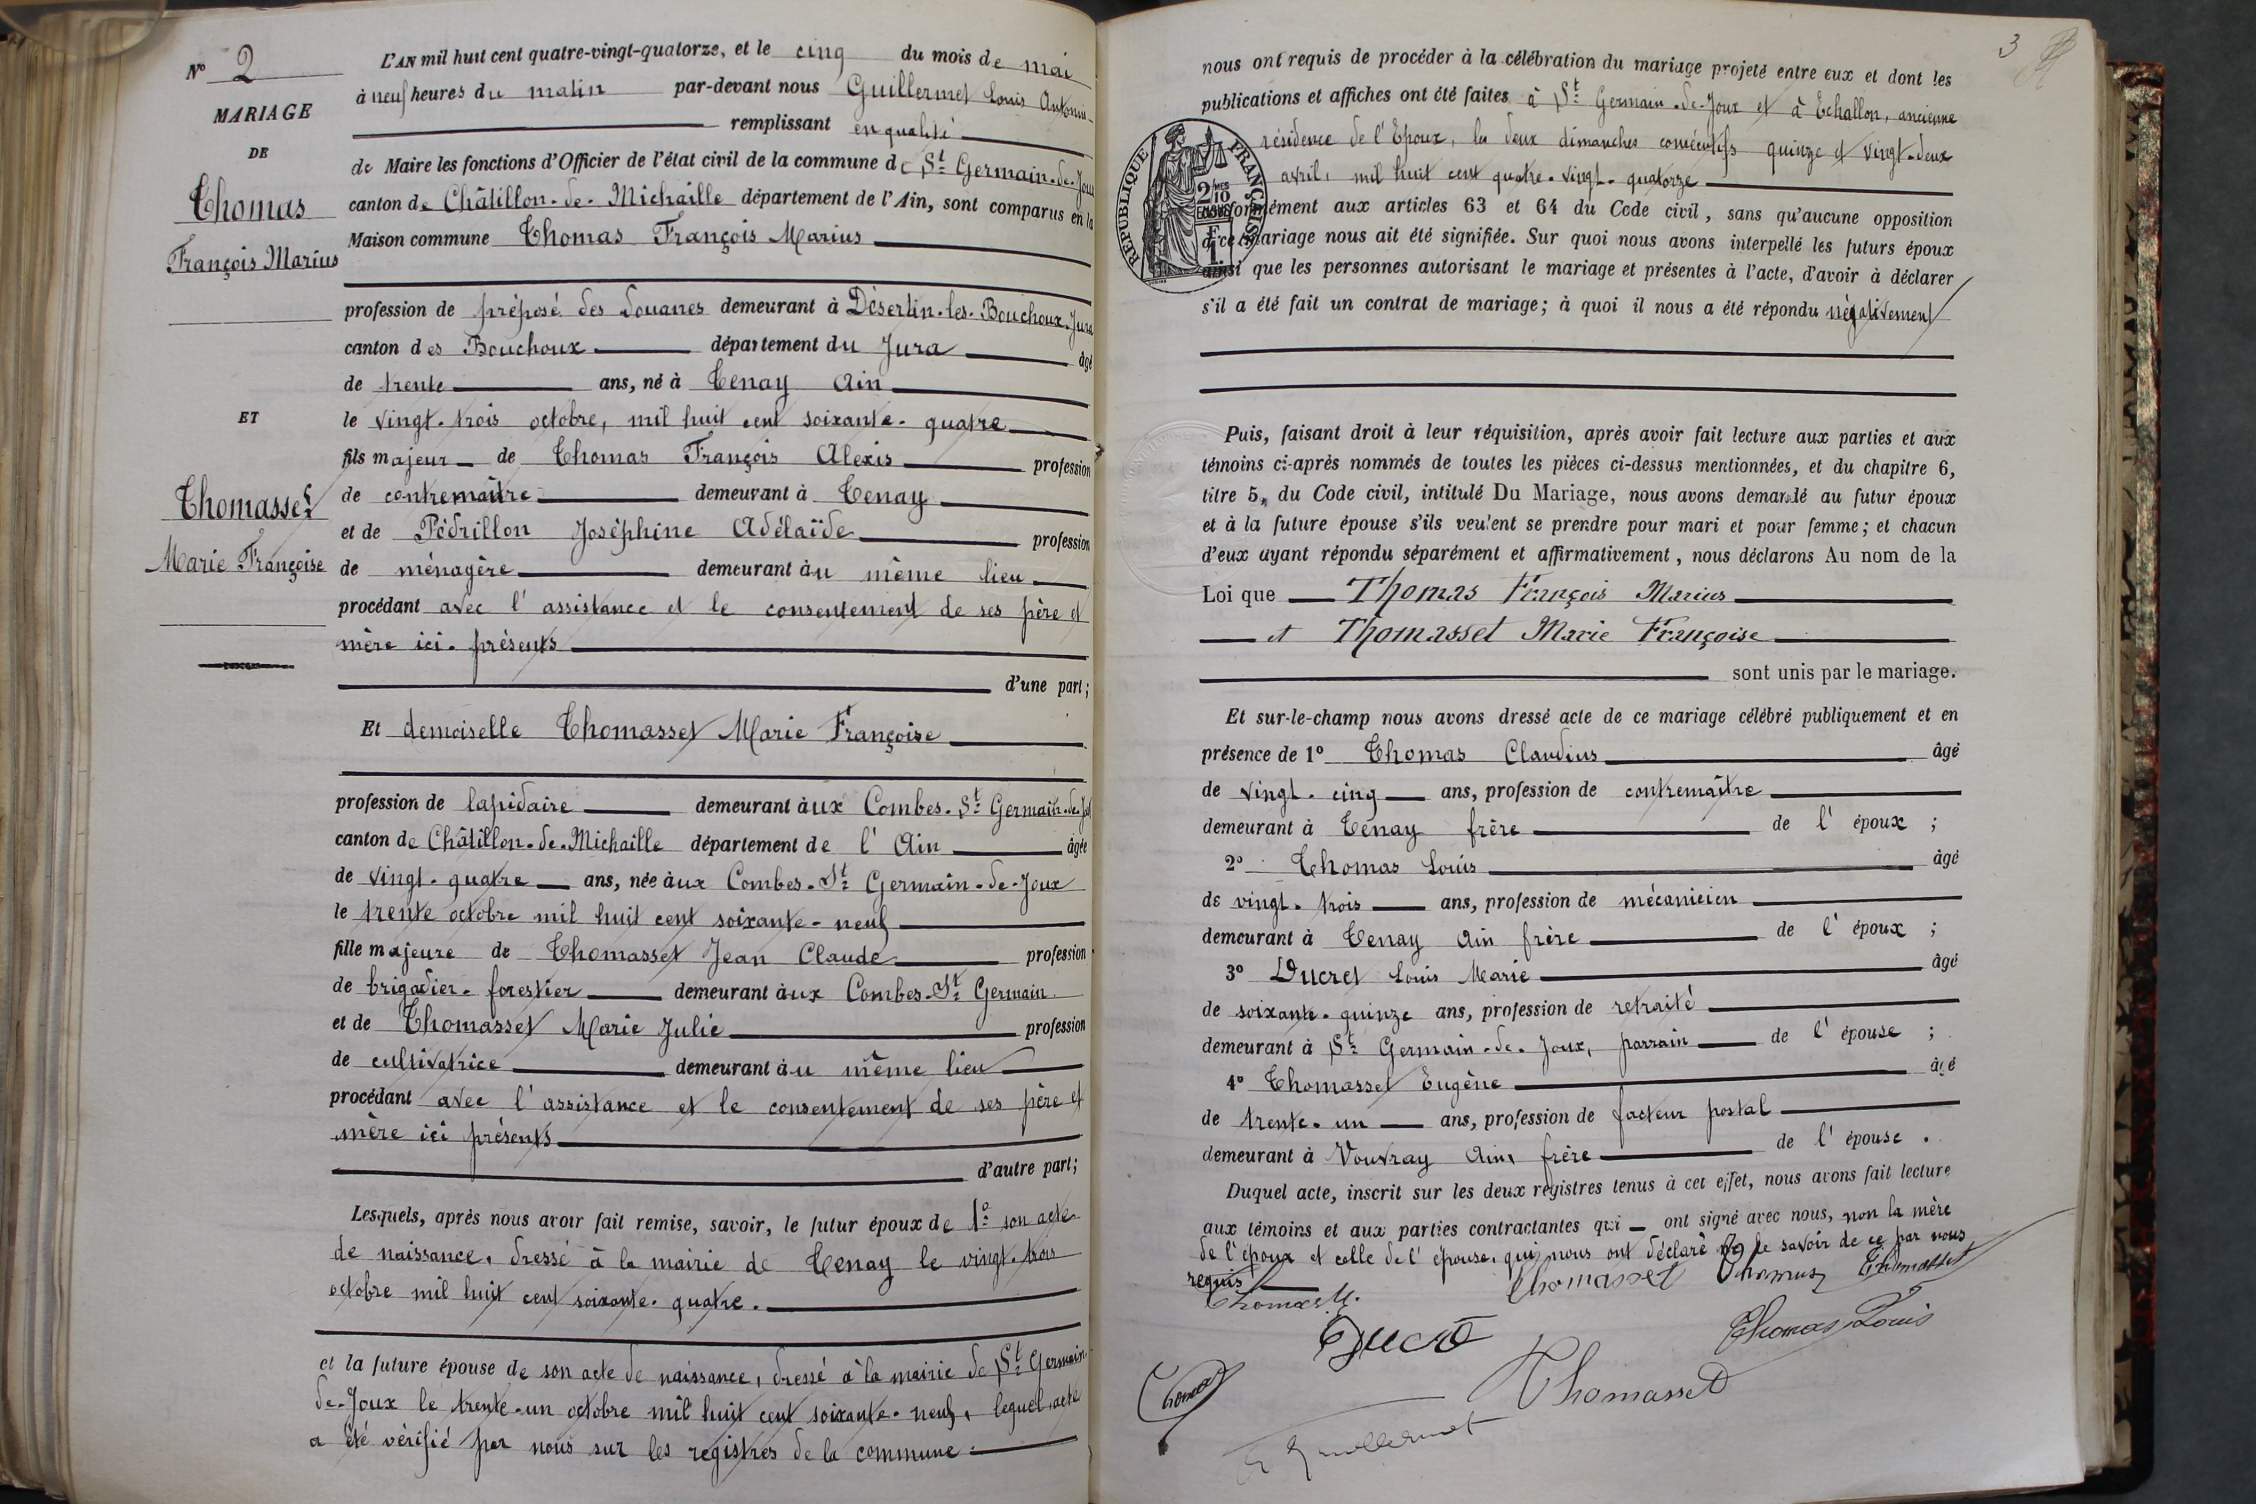 N° 2
MARIAGE
DE
Thomas
François Marius
ET
Thomasset
Marie Françoise
L'AN mil huit cent quatre-vingt-quatorze, et le cinq du mois de mai
à neuf heures du matin par-devant nous Guillermet Louis Antonin
remplissant en qualité
de Maire les fonctions d'Officier de l'état civil de la commune de St Germain-de-Joux
canton de Châtillon-de-Michaille département de l'Ain, sont comparus en la
Maison commune Thomas François Marius
profession de préposé des douanes demeurant à Désertin-les-Bouchoux-Jura
canton des Bouchoux département du Jura âgé
de trente ans, né à Tenay Ain
le vingt-trois octobre, mil huit cent soixante-quatre
fils majeur de Thomas François Alexis profession
de contremaître demeurant à Tenay
et de Pédrillon Joséphine Adélaïde profession
de ménagère demeurant au même lieu
procédant avec l'assistance et le consentement de ses père et
mère ici-présents
d'une part;
Et demoiselle Thomasset Marie Françoise
profession de lapidaire demeurant aux Combes-St Germain-de-Joux
canton de Châtillon-de-Michaille département de l'Ain âgée
de vingt-quatre ans, née aux Combes-St Germain-de-Joux
le trente octobre mil huit cent soixante-neuf
fille majeure de Thomasset Jean Claude profession
de brigadier-forestier demeurant aux Combes-St Germain
et de Thomasset Marie Julie profession
de cultivatrice demeurant au même lieu
procédant avec l'assistance et le consentement de ses père et
mère ici présents
d'autre part;
Lesquels, après nous avoir fait remise, savoir, le futur époux de 1° son acte
de naissance, dressé à la mairie de Tenay le vingt-trois
octobre mil huit cent soixante-quatre.
et la future épouse de son acte de naissance, dressé à la mairie de St Germain-
de-Joux le trente-un octobre mil huit cent soixante-neuf, lequel acte
a été vérifié par nous sur les registres de la commune.
3
nous ont requis de procéder à la célébration du mariage projeté entre eux et dont les
publications et affiches ont été faites à St Germain-de-Joux et à Echallon, ancienne
résidence de l'Epoux, les deux dimanches consécutifs quinze et vingt-deux
avril, mil huit cent quatre-vingt-quatorze
RÉPUBLIQUE FRANÇAISE
2/10 EN SUS
conformément aux articles 63 et 64 du Code civil, sans qu'aucune opposition
à ce mariage nous ait été signifiée. Sur quoi nous avons interpellé les futurs époux
ainsi que les personnes autorisant le mariage et présentes à l'acte, d'avoir à déclarer
s'il a été fait un contrat de mariage; à quoi il nous a été répondu négativement
Puis, faisant droit à leur réquisition, après avoir fait lecture aux parties et aux
témoins ci-après nommés de toutes les pièces ci-dessus mentionnées, et du chapitre 6,
titre 5, du Code civil, intitulé Du Mariage, nous avons demandé au futur époux
et à la future épouse s'ils veulent se prendre pour mari et pour femme; et chacun
d'eux ayant répondu séparément et affirmativement, nous déclarons Au nom de la
Loi que Thomas François Marius
et Thomasset Marie Françoise
sont unis par le mariage.
Et sur-le-champ nous avons dressé acte de ce mariage célébré publiquement et en
présence de 1° Thomas Claudius âgé
de vingt-cinq ans, profession de contremaître
demeurant à Tenay frère de l'époux;
2° Thomas Louis âgé
de vingt-trois ans, profession de mécanicien
demeurant à Tenay Ain frère de l'époux;
3° Ducret Louis Marie âgé
de soixante-quinze ans, profession de retraité
demeurant à St Germain-de-Joux, parrain de l'épouse;
4° Thomasset Eugène âgé
de trente-un ans, profession de facteur postal
demeurant à Vouvray Ain, frère de l'épouse.
Duquel acte, inscrit sur les deux registres tenus à cet effet, nous avons fait lecture
aux témoins et aux parties contractantes qui ont signé avec nous, non la mère
de l'époux et celle de l'épouse, qui nous ont déclaré ne le savoir de ce par nous
requis
Thomasset Thomas Thomasset
Thomas M.
Ducret
Thomas Louis
Thomas
Thomasset
Guillermet